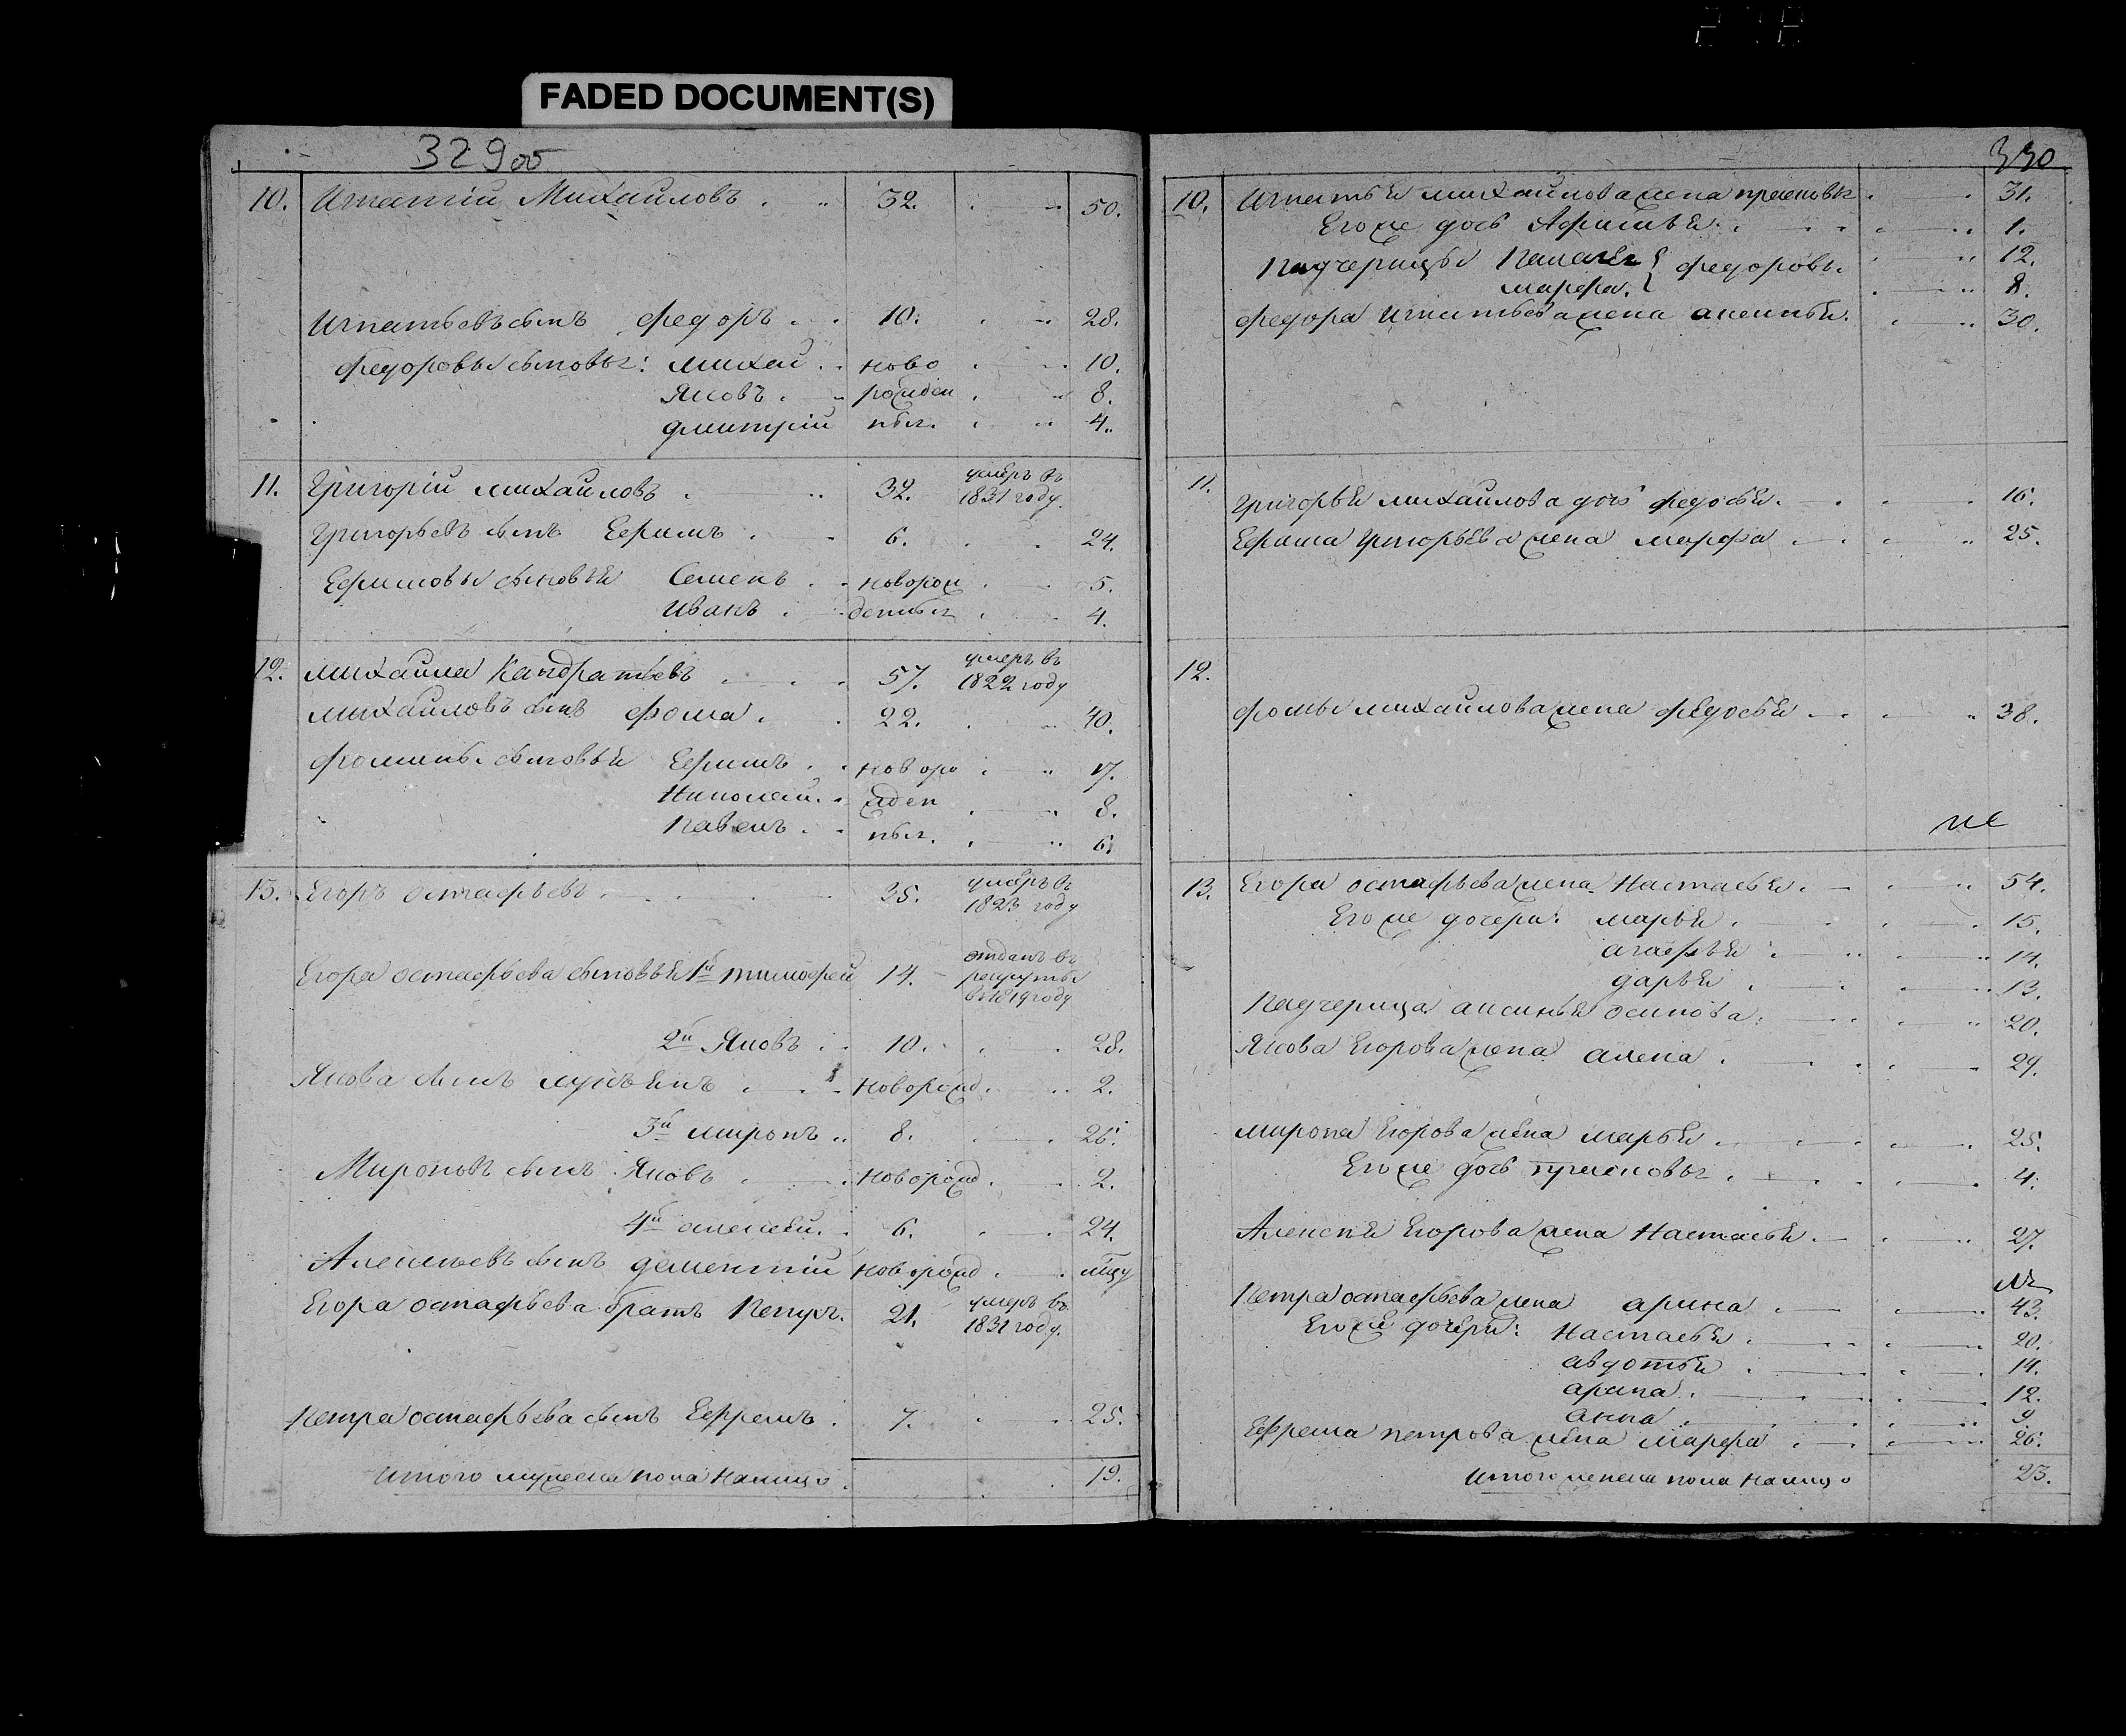 FADED DOCUMENT(S)
329 об
10. Игнатій Михайловъ . 32. 50.
Игнатьевъ сынъ федоръ . 10. 28.
федоровы сыновья: михай . ново 10.
Яковъ . рожден 8.
дмитрій ныя. 4.
11. Григорій михайловъ . 32. умеръ въ 1831 году.
Григорьевъ сынъ Ефимъ . 6. 24.
Ефимовы сыновья Семенъ . новорож 5.
Иванъ . денныя 4.
12. михайла Кандратьевъ 57. умеръ въ 1822 году
михайловъ сынъ фома . 22. 40.
фомины сыновья Ефимъ . новоро 17.
Николай . жден 8.
Павелъ . ныя. 6.
13. Егоръ остафьевъ . 35. умеръ въ 1823 году
Егора остафьева сыновья 1й тимофей 14. отданъ въ рекруты в 1819 году
2й Яковъ . 10. 28.
Якова сынъ лукьянъ . новорожд. 2.
3й миронъ .. 8. 26.
Мироновъ сынъ Яковъ новорожд. 2.
4й алексей . 6. 24.
Алексеевъ сынъ дементій новорожд. мцу
Егора остафьева братъ Петръ. 21. умеръ въ 1831 году.
Петра остафьева сынъ Ефремъ . 7. 25.
Итого мужеска пола налицо . 19.
330
10. Игнатья михайлова жена прасковья 31.
Его же дочь Афимья . 1.
Падчерицы Палагея } федоровы 12.
марфа. } 8.
федора Игнатьева жена аксинья. 30.
11.
Григорья михайлова дочь федосья . 16.
Ефима Григорьева жена марфа 25.
12.
фомы михайлова жена федосья 38.
13. Егора остафьева жена Настасья . 54.
Его же дочери: марья . 15.
агафья . 14.
дарья . 13.
Падчерица аксинья осипова . 20.
Якова Егорова жена алена . 29.
мирона Егорова жена марья . 25.
Его же дочь прасковья . 4.
Алексея Егорова жена Настасья . 27.
Петра остафьева жена арина 43.
Его же дочери: Настасья . 20.
авдотья . 14.
арина . 12.
анна . 9
Ефрема петрова жена марфа 26.
Итого женска пола налицо 23.